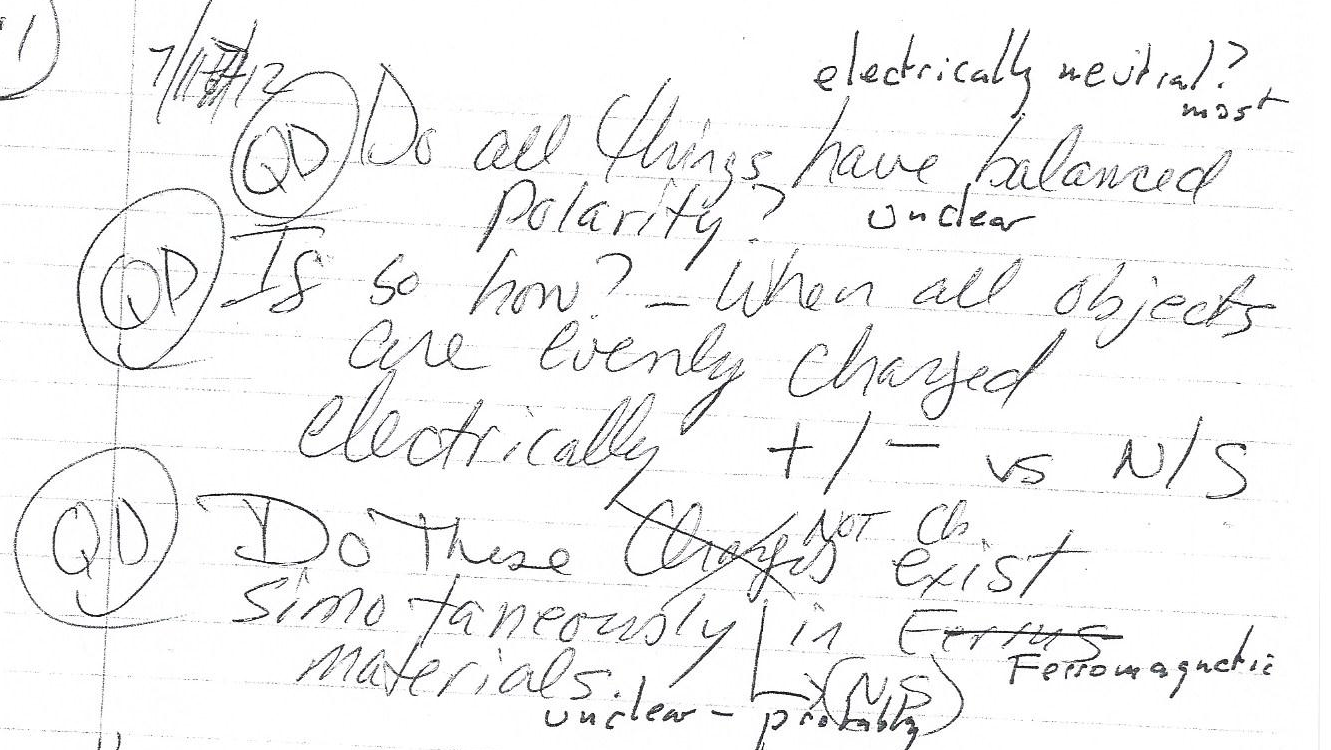 electrically neutral?
most
QD Do all things have balanced
polarity? unclear
QD If so how? - When all objects
are evenly charged
electrically +/- vs N/S
NOT Ch.
QD Do These Charges exist
simotaneously in Ferrus
Ferromagnetic
materials. (N,S)
unclear - probably